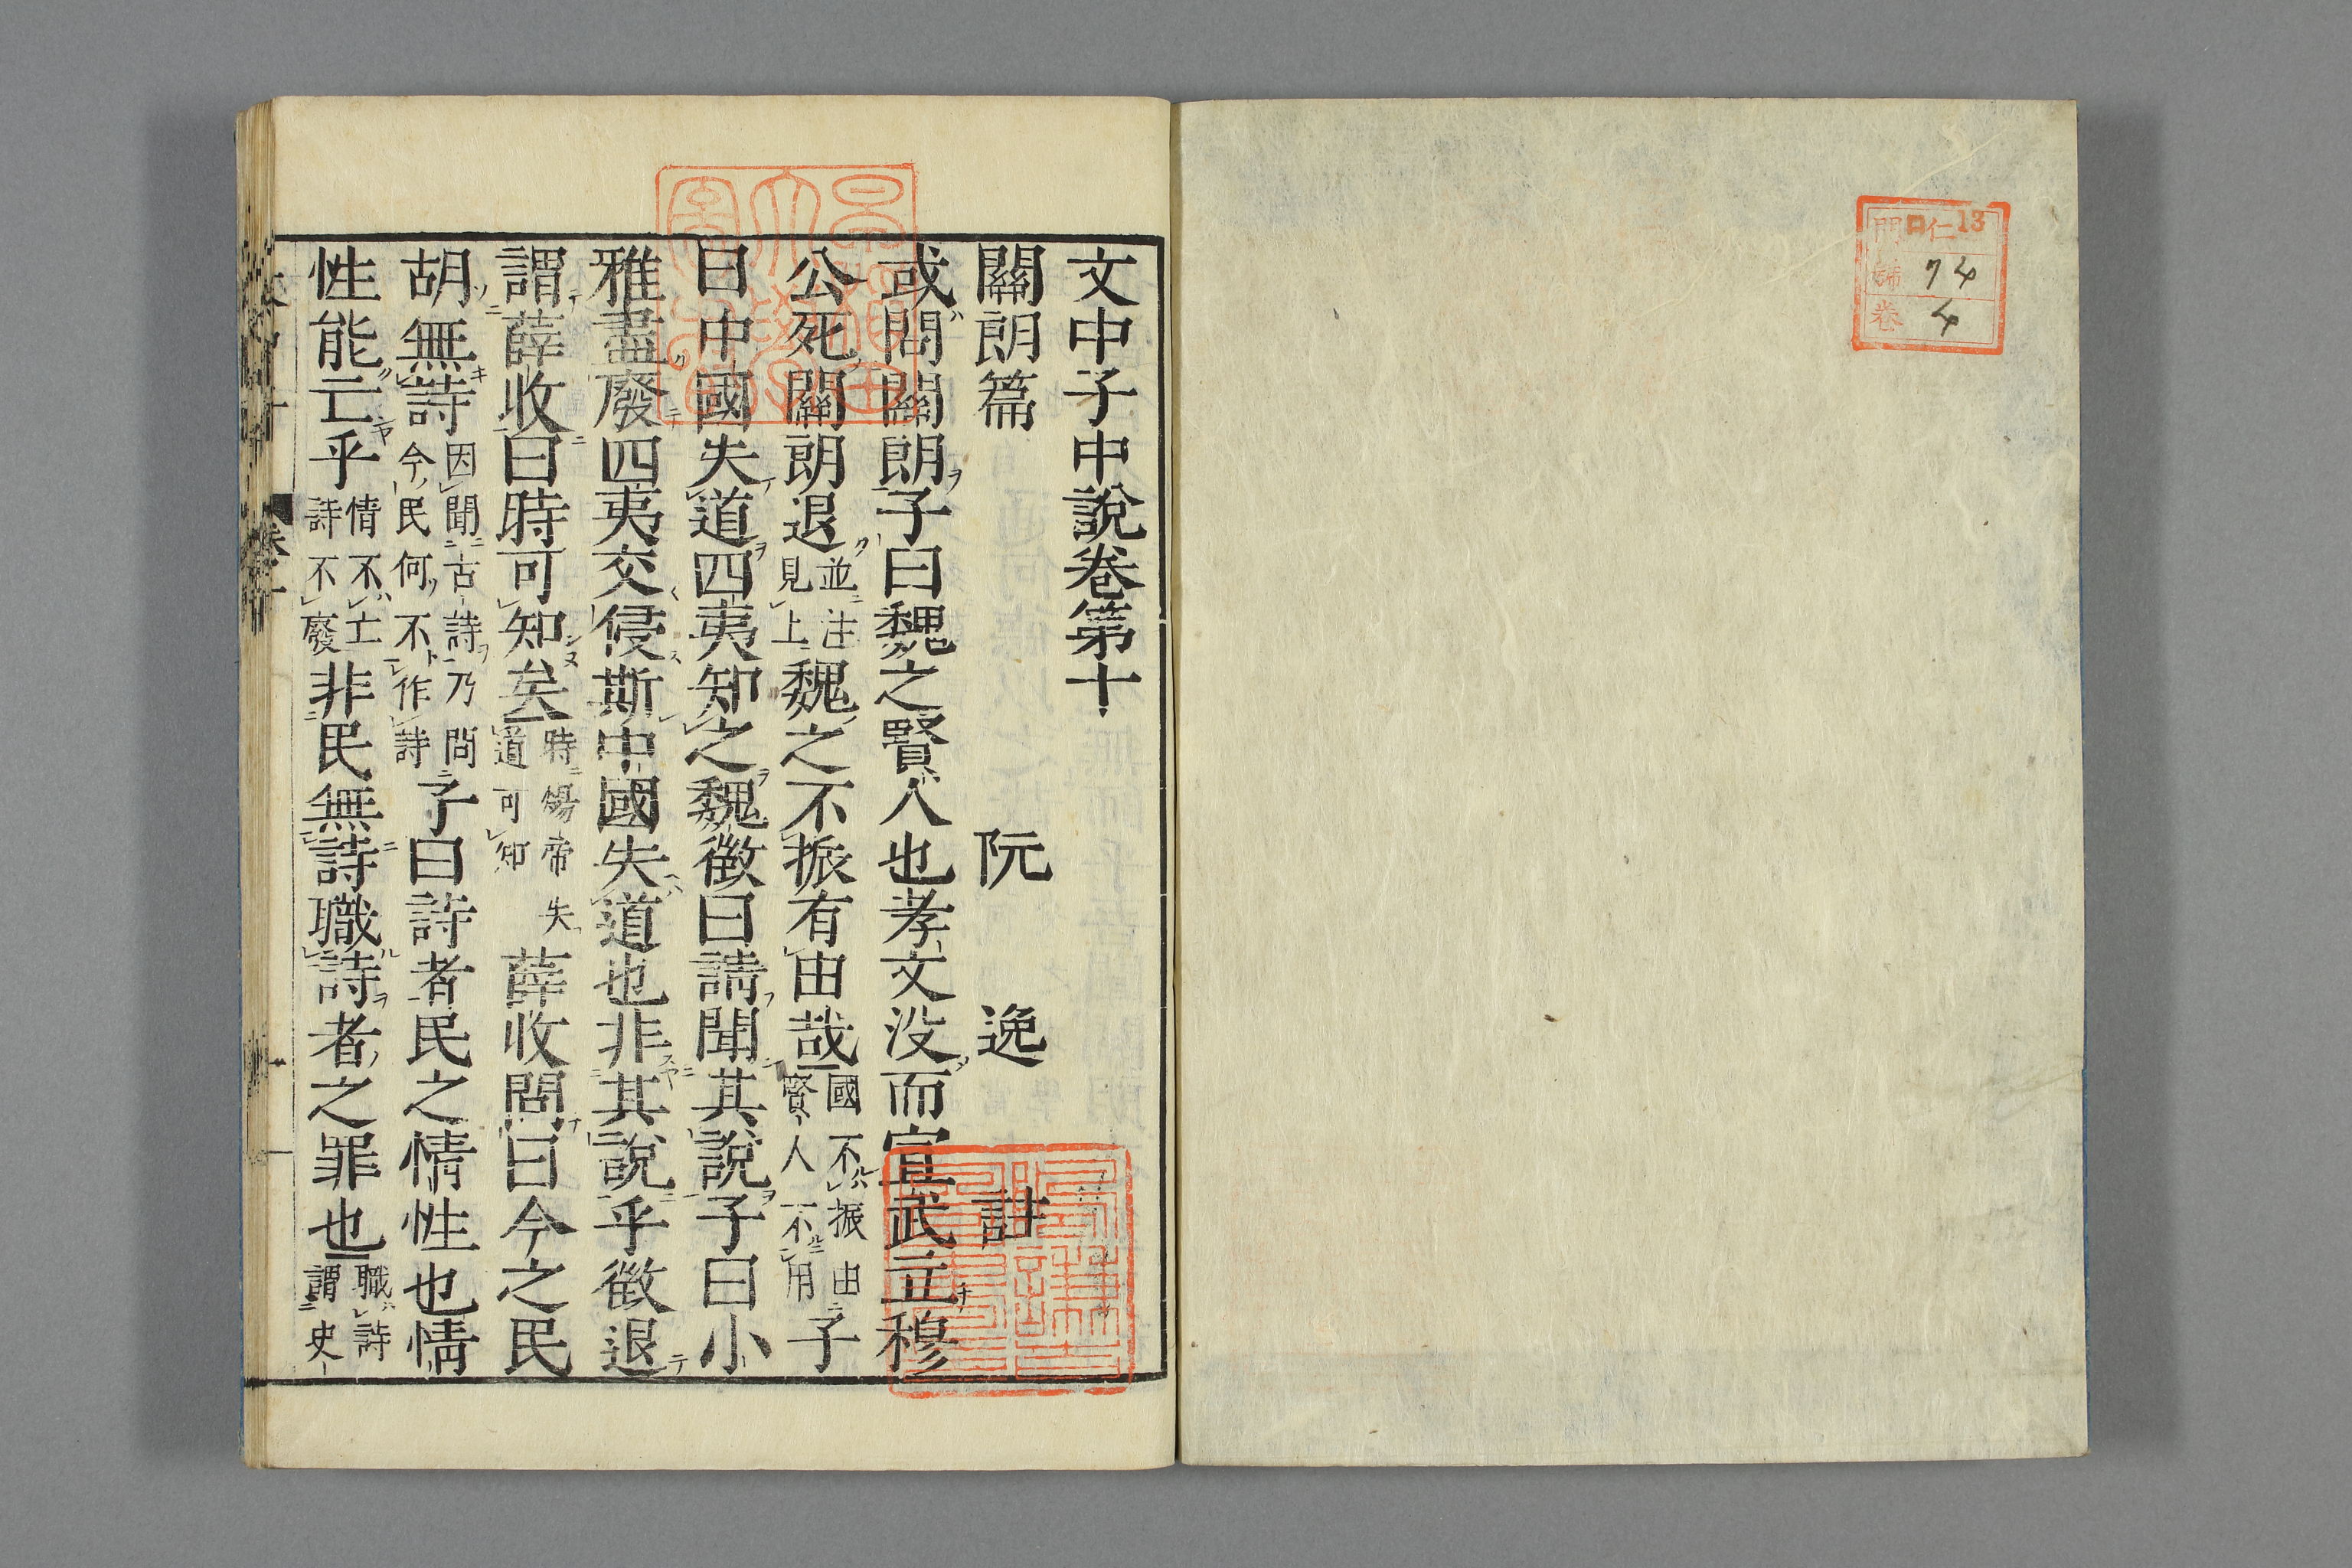 門 口仁13
號 74
卷 4
文中子中說卷第十
關朗篇 阮逸註
或問關朗子曰魏之賢人也孝文没而宣武立穆
公死關朗退並注見上魏之不振有由哉國不振由賢人不用子
曰中國失道四夷知之魏徵曰請聞其說子曰小
雅盡廢四夷交侵斯中國失道也非其說乎徵退
謂薛收曰時可知矣時煬帝失道可知薛收問曰今之民
胡無詩因聞古詩乃問今民何不作詩子曰詩者民之情性也情
性能亡乎情不亡詩不廢非民無詩職詩者之罪也職詩謂史